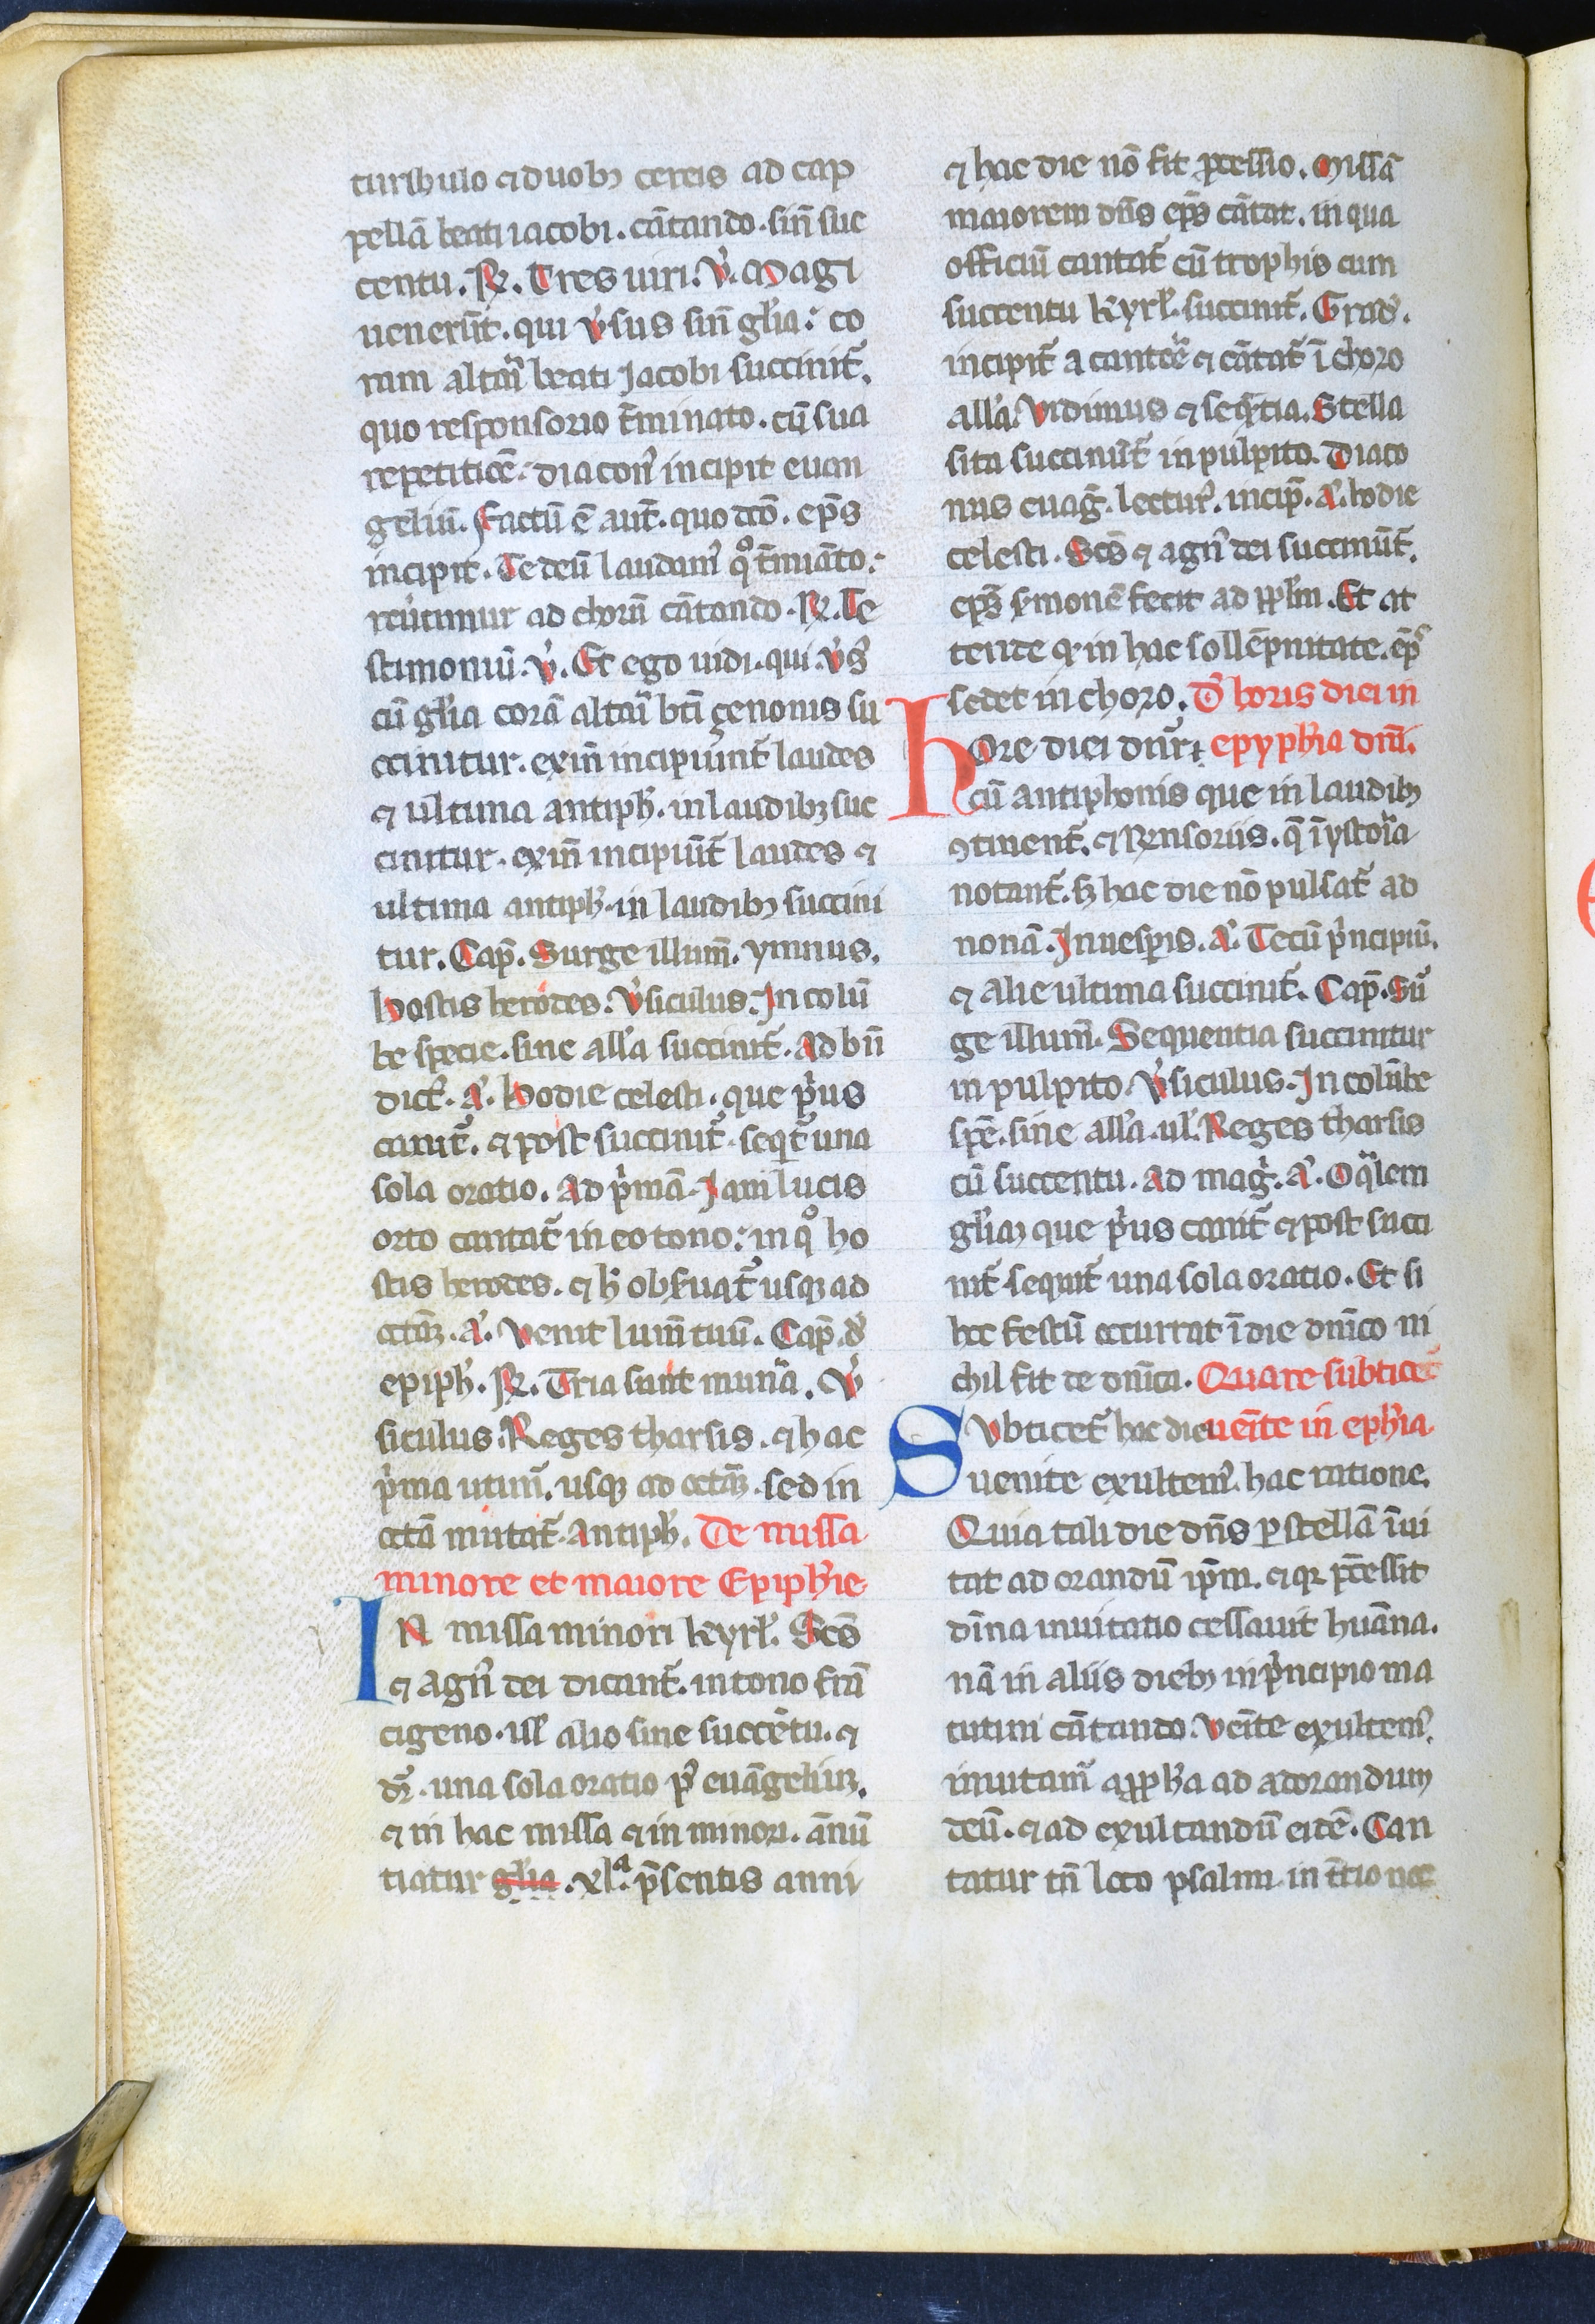 turibulo ⁊ duobꝫ cereis ad cap
pellā beati iacobi. cātando. sin̄ suc
centu. ℞. Tres uiri. ℣. Magi
uenerūt. qui v̓sus sin̄ gl̓ia: co
ram altari beati Jacobi succinit᷑.
quo responsorio t̄minato. cū sua
repetitiōe. diacon᷒ incipit euan
geliū. Factū ē aut̄. quo dc̄o. ep̄s
incipit. Te deū laudam᷒ qͦ t̄miāto.
reu̓timur ad chorū cātando. ℞. Te
stimoniū. ℣. Et ego uidi. qui v̓s᷒
cū gl̓ia corā altari bt̄i çenonis su
ccinitur. exin̄ incipiunt᷑ laudes
⁊ ultima antiph̓. in laudibꝫ suc
cinitur. exin̄ incipiūt᷑ laudes ⁊
ultima antiph̓. in laudibꝫ succini
tur. Cap̄. Surge illum̄. ymnus.
Hostis herodes. V̓siculus. In colū
be specie. sine all̓a succinit᷑. Ad bn̄
dict̓. a᷒. Hodie celesti. que pͥus
canit᷑. ⁊ post succinit᷑. seqͥt᷑ una
sola oratio. Ad pͥmā. Jam lucis
orto cantat᷑ in eo tono: in qͦ ho
stis herodes. ⁊ h̓ obs̓uat᷑ usqꝫ ad
octāꝫ. a᷒. Venit lum̄ tuū. Cap̄. d̓
epiph̓. ℞. Tria sunt mun̓a. V̓
siculus. Reges tharsis. ⁊ hac
pͥma utim᷒. usqꝫ ad octāꝫ. sed in
octā mutat᷑. Antiph̓. De missa
minore et maiore Epiph̓ie.
IN missa minori kyrł. Sc̄s
⁊ agn᷒ dei dicunt᷑. in tono frā
cigeno. ul̓ alio sine succētu. ⁊
dr̄. una sola oratio p᷒ euāgeliuꝫ.
⁊ in hac missa ⁊ in minori. ānū
tiatur gl̓ia. xlᵃ. p̄sentis anni
⁊ hac die nō fit ꝓcessio. Missā
maiorem dn̄s ep̄s cātat. in qua
officiū cantat᷑ cū trophis cum
succentu kyrł. succinit᷑. Grad̓.
incipit᷑ a cantore ⁊ cātat᷑ ī choro
all̓a. Vidimus ⁊ seq̄ntia. Stella
sita succinūt᷑ in pulpito. Diaco
nus euāg̓. lectur᷒. incip̄. a᷒. hodie
celesti. Sc̄s ⁊ agn᷒ dei succinūt᷑.
ep̄s s̓monē fecit ad ppl̓m. Et at
tente ꝙ in hac sollēpnitate. ep̄s
sedet in choro. D̓ horis diei in
Hore diei dn̄r epyph̓ia dn̄i.
cū antiphonis que in laudibꝫ
ꝯtinent᷑. ⁊ R̓nsoriis. q̄ ī ystoria
notant᷑. sꝫ hac die nō pulsat᷑ ad
nonā. In uesp̱is. a᷒. Tecū pͥncipiū.
⁊ alie ultima succinit᷑. Cap̄. Sur
ge illum̄. Sequentia succinitur
in pulpito. V̓siculus. In colūbe
spē. sine all̓a. ul̓. Reges tharsis
cū succentu. Ad mag̓. a᷒. O qͣlem
gl̓iaꝫ que pͥus canit᷑ ⁊ post succi
nit᷑ sequit᷑ una sola oratio. Et si
hoc festū occurrat ī die dn̄ico ni
chil fit de dn̄ica. Quare subticet᷑
Subticet᷑ hac die ueīte in eph̓ia
uenite exultem᷒. hac ratione.
Quia tali die dn̄s ꝑ stellā īui
tat ad orandū ip̄m. ⁊ ꝙ p̄cessit
dīna inuitatio cessauit huāna.
nā in aliis diebꝫ in pͥncipio ma
tutini cātando. Veīte exultem᷒.
inuitam᷒ app̱h̓a ad adorandum
deū. ⁊ ad exultandū eidē. Can
tatur tn̄ loco psalmi in t̄tio noc